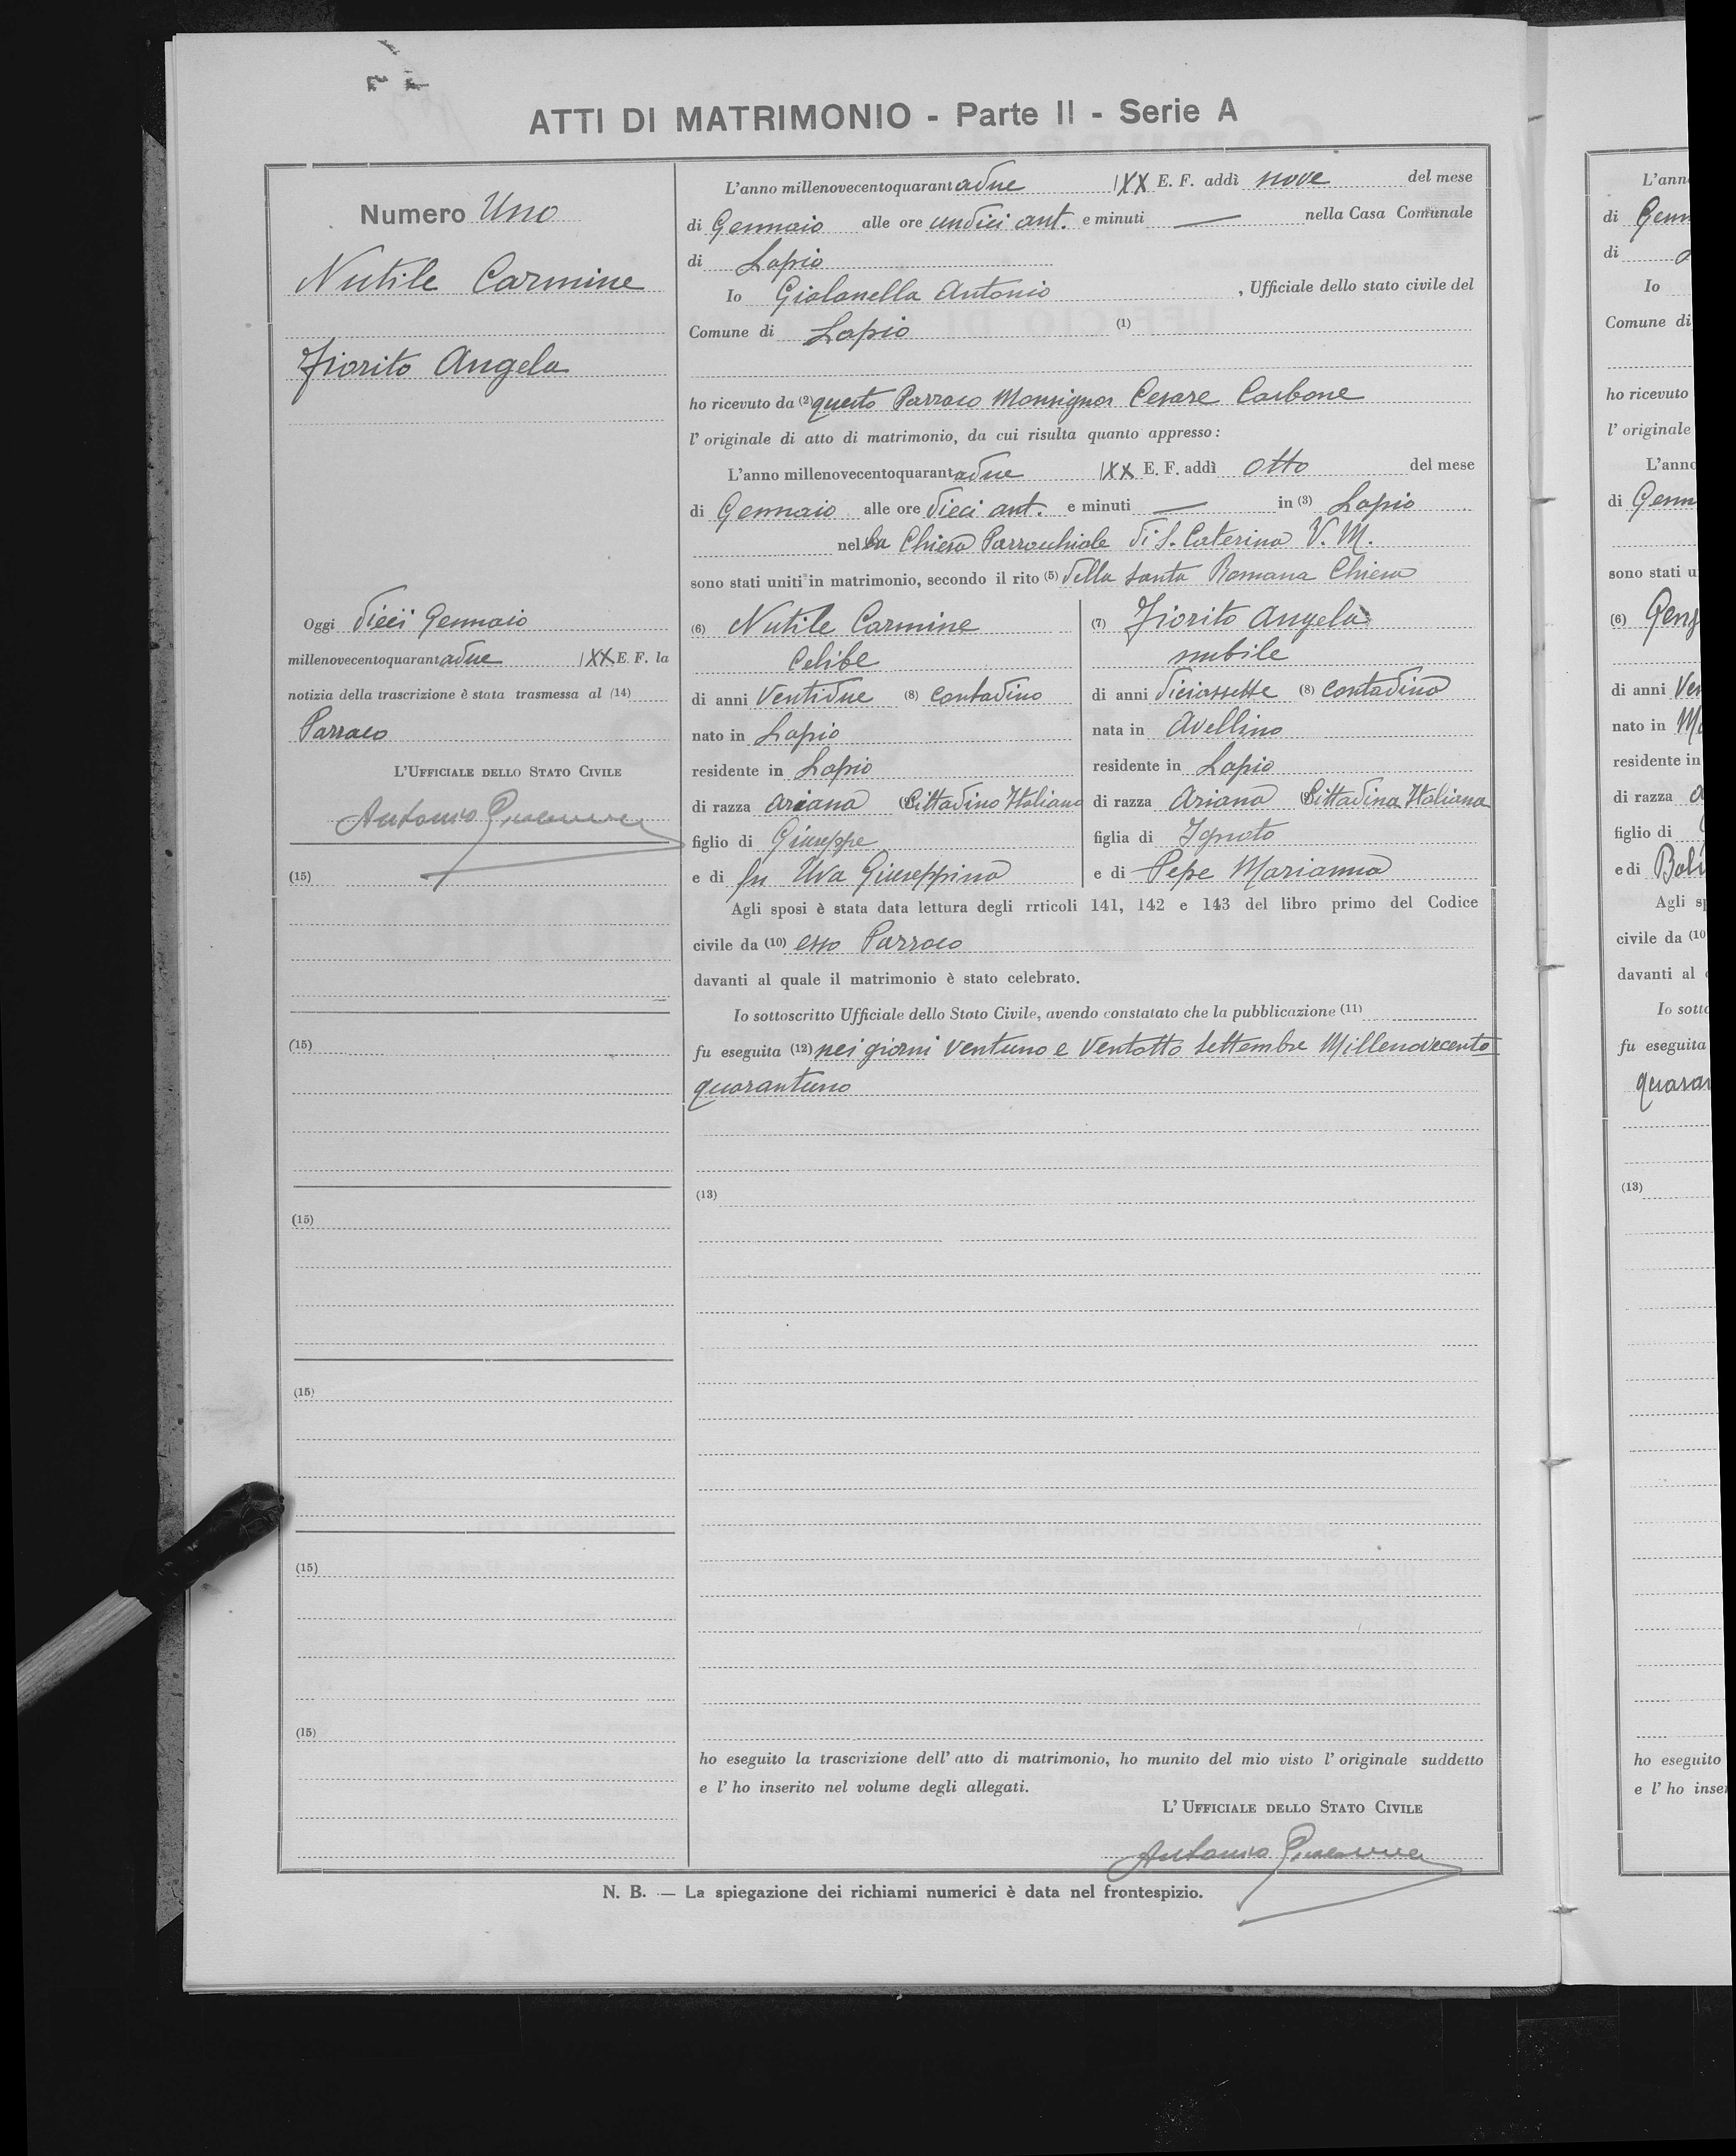 ATTI DI MATRIMONIO - Parte II - Serie A
Numero Uno
Nutile Carmine
Fiorito Angela
Oggi dieci Gennaio
millenovecentoquarantadue XX E. F. la
notizia della trascrizione è stata trasmessa al (14)
Parroco
L'UFFICIALE DELLO STATO CIVILE
Antonio
(15)
(15)
(15)
(15)
(15)
(15)
L'anno millenovecentoquarantadue XX E. F. addì nove del mese
di Gennaio alle ore undici ant. e minuti — nella Casa Comunale
di Lapio
Io Giolanella Antonio, Ufficiale dello stato civile del
Comune di Lapio (1)
ho ricevuto da (2) questo Parroco Monsignor Cesare Carbone
l'originale di atto di matrimonio, da cui risulta quanto appresso:
L'anno millenovecentoquarantadue XX E. F. addì otto del mese
di Gennaio alle ore dieci ant. e minuti — in (3) Lapio
nella Chiesa Parrocchiale di S. Caterina V. M.
sono stati uniti in matrimonio, secondo il rito (5) della Santa Romana Chiesa
(6) Nutile Carmine
Celibe
di anni Ventidue (8) contadino
nato in Lapio
residente in Lapio
di razza ariana Cittadino Italiano
figlio di Giuseppe
e di fu Uva Giuseppina
(7) Fiorito Angela
nubile
di anni diciassette (8) contadina
nata in Avellino
residente in Lapio
di razza Ariana Cittadina Italiana
figlia di Ignoto
e di Pepe Marianna
Agli sposi è stata data lettura degli rrticoli 141, 142 e 143 del libro primo del Codice
civile da (10) esso Parroco
davanti al quale il matrimonio è stato celebrato.
Io sottoscritto Ufficiale dello Stato Civile, avendo constatato che la pubblicazione (11)
fu eseguita (12) nei giorni ventuno e ventotto Settembre Millenovecento
quarantuno
(13)
ho eseguito la trascrizione dell'atto di matrimonio, ho munito del mio visto l'originale suddetto
e l'ho inserito nel volume degli allegati.
L'UFFICIALE DELLO STATO CIVILE
Antonio
N. B. — La spiegazione dei richiami numerici è data nel frontespizio.
L'ann
di Genn
di
Io
Comune di
ho ricevuto
l'originale
L'anno
di Genn
sono stati u
(6)
di anni Ven
nato in
residente in
di razza
figlio di
e di
Agli sp
civile da (10
davanti al
Io sotto
fu eseguita
quaran
(13)
ho eseguito
e l'ho inser